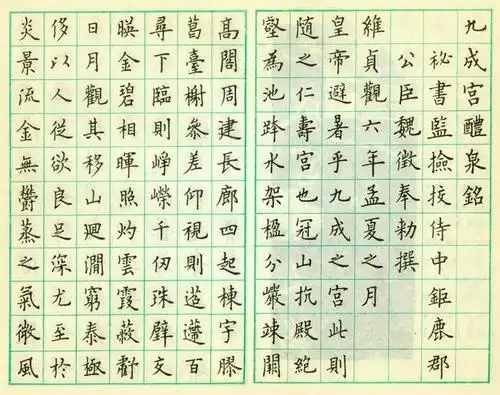 九成宮醴泉銘
祕書監撿挍侍中鉅鹿郡
公臣魏徵奉勑撰
維貞觀六年孟夏之月
皇帝避暑乎九成之宮此則
随之仁壽宮也冠山抗殿絕
壑為池跨水架楹分巖竦闕
髙閣周建長廊四起棟宇膠
葛臺榭參差仰視則迢遰百
尋下臨則崢嶸千仞珠壁交
暎金碧相暉照灼雲霞蔽虧
日月觀其移山迴澗窮泰極
侈以人從欲良足深尤至於
炎景流金無欝蒸之氣微風